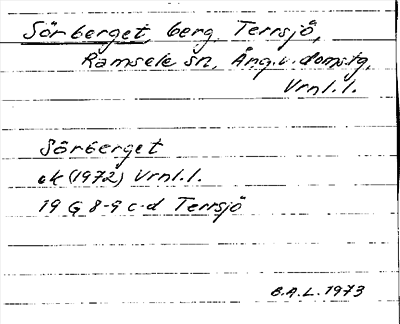 Sörberget, berg, Terrsjö,
Ramsele sn, Ång.v. doms.tg,
Vrnl.l.
Sörberget
ek (1972) Vrnl.l.
19 G 8-9 c-d Terrsjö
B.A.L. 1973